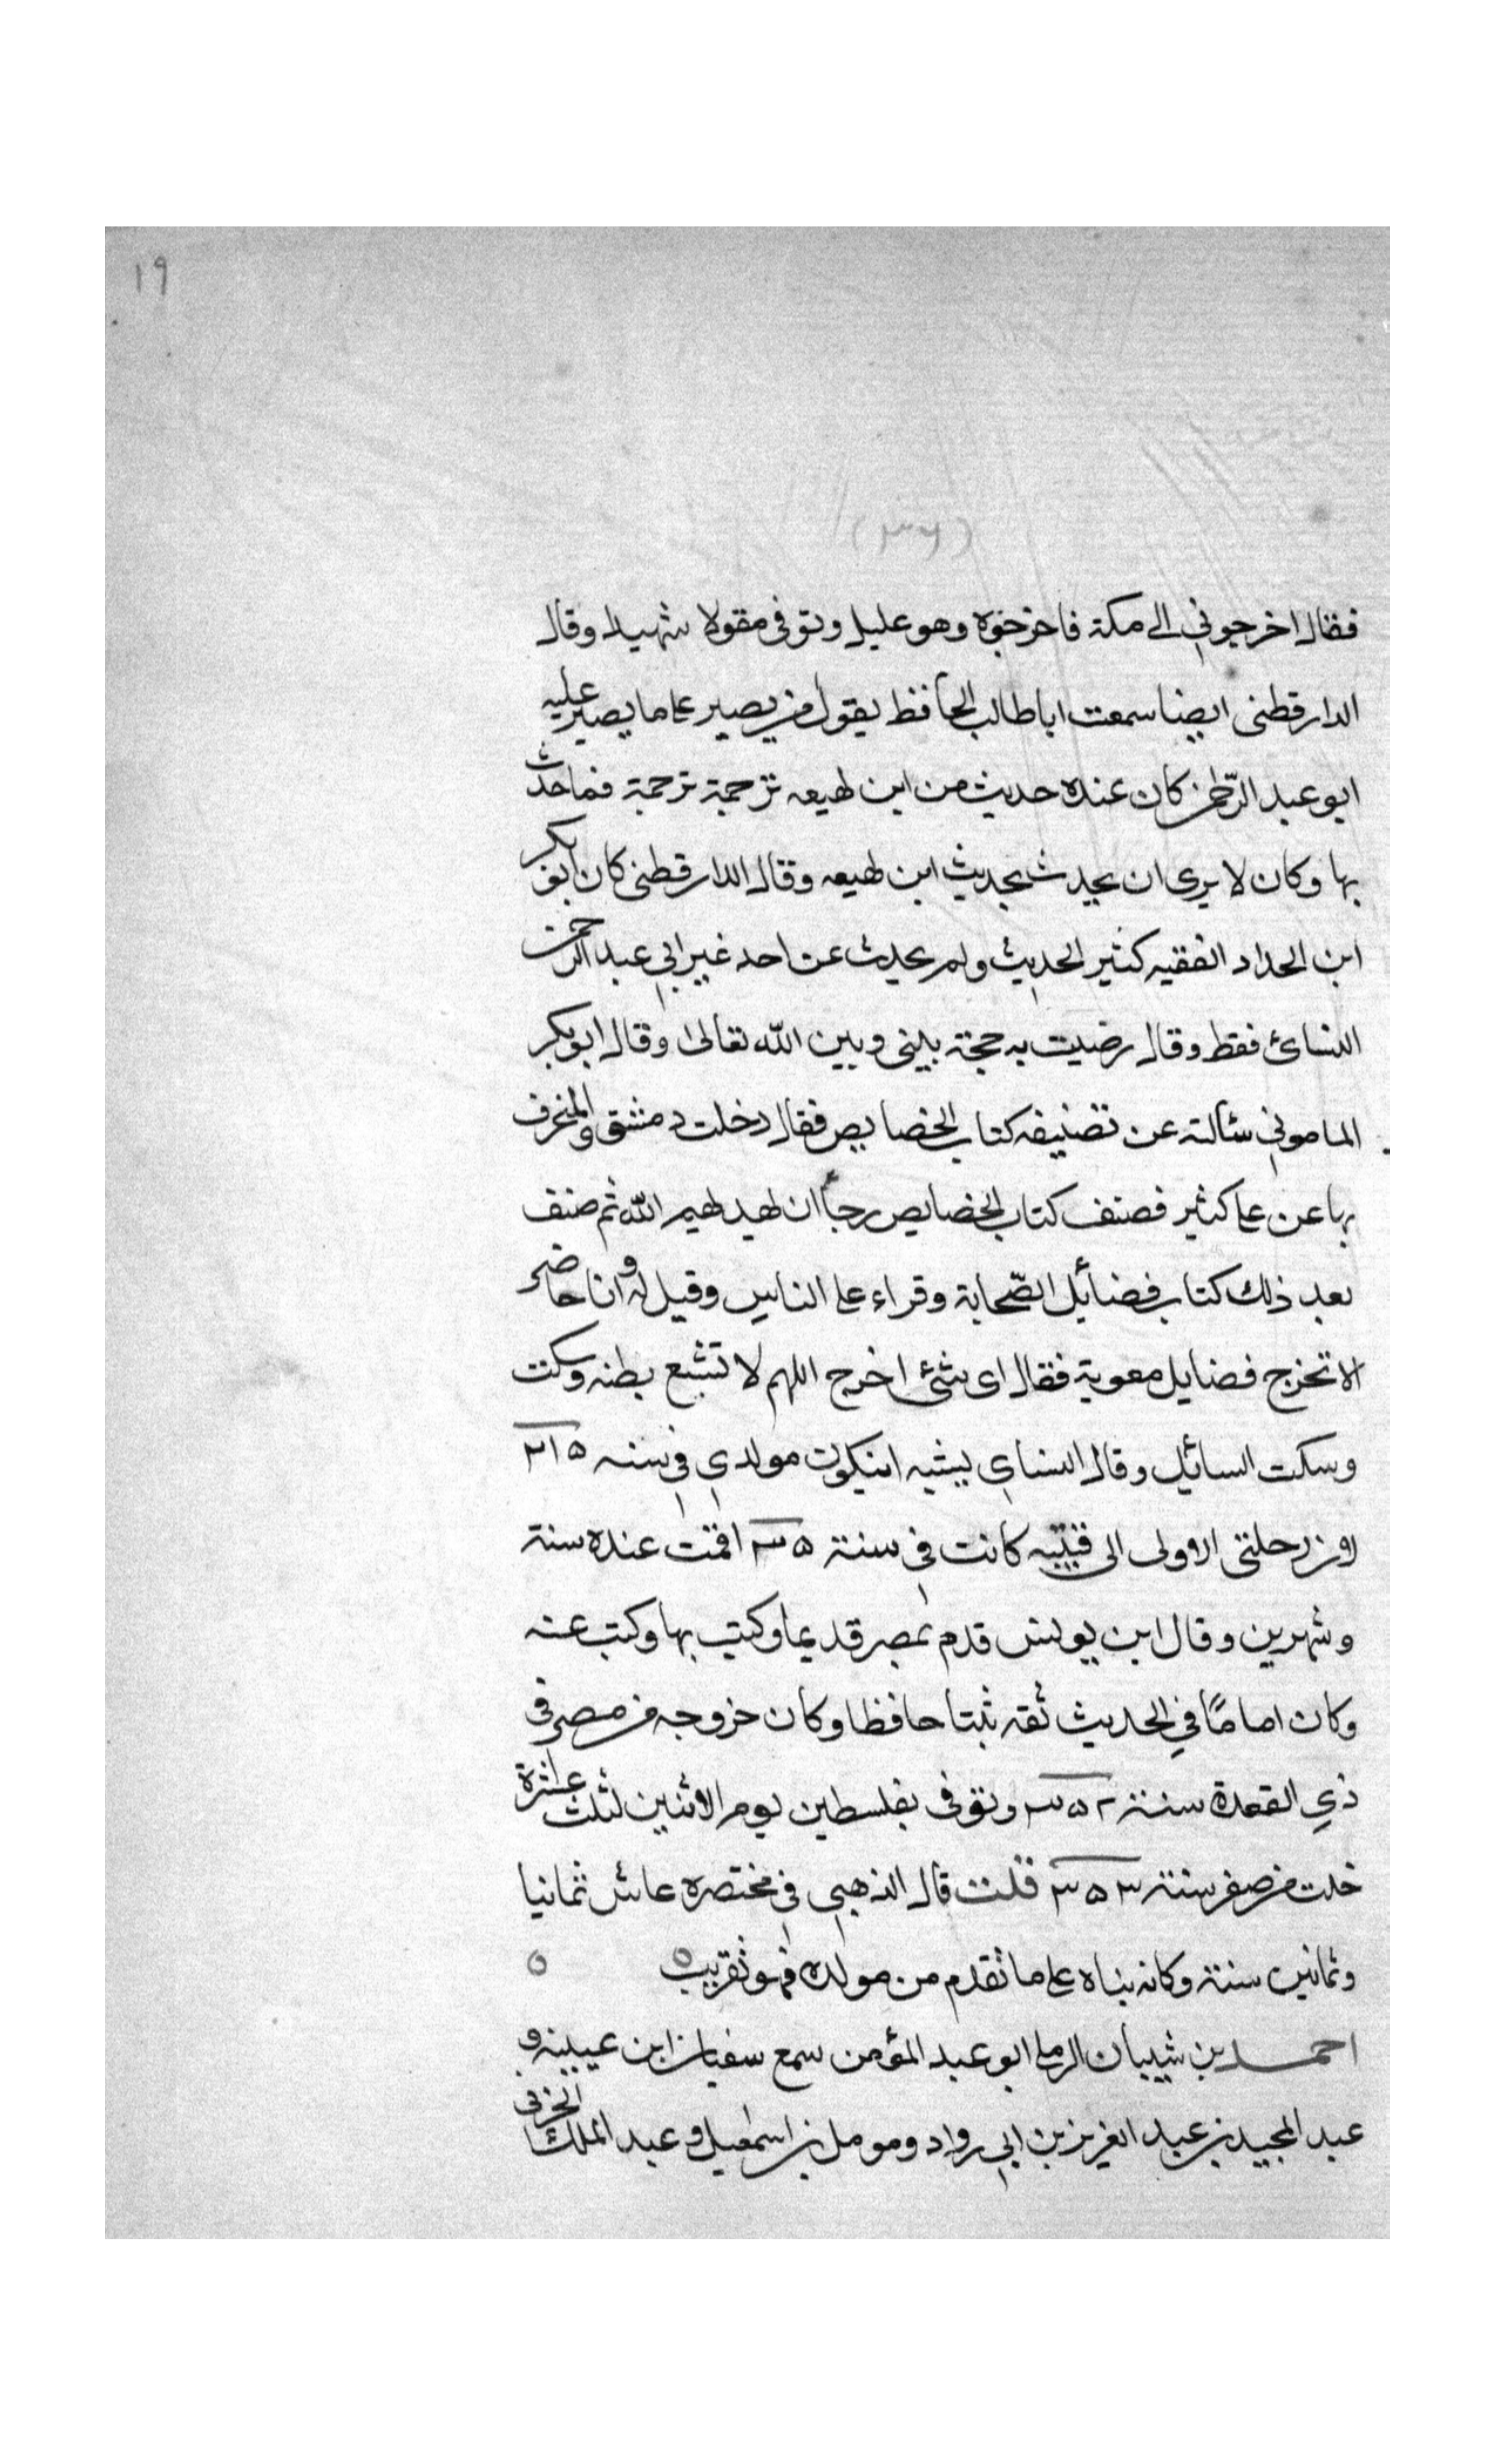 ١٩
(٣٦)
فقال اخرجوني الى مكة فاخرجوه وهو عليل وتوفى مقولا شهيدا وقال
الدارقطنى ايضا سمعت ابا طالب الحافظ يقول من يصير على ما يصير عليه
ابو عبد الرحمن كان عنده حديث من ابن لهيعه ترجمة ترجمة فما حدث
بها وكان لا يرى ان يحدث بحديث ابن لهيعه وقال الدارقطنى كان ابو بكر
ابن الحداد الفقيه كثير الحديث ولم يحدث عن احد غير ابي عبد الرحمن
النسائ فقط وقال رضيت به حجة بيني وبين الله تعالى وقال ابو بكر
الماموني سئالته عن تصنيفه كتاب الخصايص فقال دخلت دمشق والمنحرف
بها عن على كثير فصنف كتاب الخصايص رجاأ ان يهديهم الله ثم صنف
بعد ذلك كتاب فضائل الصّحابة وقراء على الناس وقيل له وانا حاضر
الا تخرج فضايل معوية فقال اى شئ اخرج اللهم لا تشبع بطنه وسكت
وسكت السائل وقال النساي يشبه ان يكون مولدي في سنه ٢١٥
لان رحلتى الاولى الى قتيبه كانت في سنة ٣٥ اقمت عنده سنة
وشهرين وقال ابن يونس قدم بمصر قديما وكتب بها وكتب عنه
وكان اماماً في الحديث ثقه ثبتا حافظا وكان خروجه من مصر فى
ذي القعدة سنة ٣٥٢ وتوفى بفلسطين يوم الاثنين لثلث عشرة
خلت من صفر سنة ٣٥٣ قلت قال الذهبي في مختصره عاش ثمانيا
وثمانين سنة وكانه بناه على ما تقدم من مولده فهو تقريب ٥ ٥
احمد بن شيبان الرملى ابو عبد المؤمن سمع سفيان ابن عيينه و
عبد المجيد بن عبد العزيز بن ابي رواد ومومل بن اسمعيل وعبد الملك